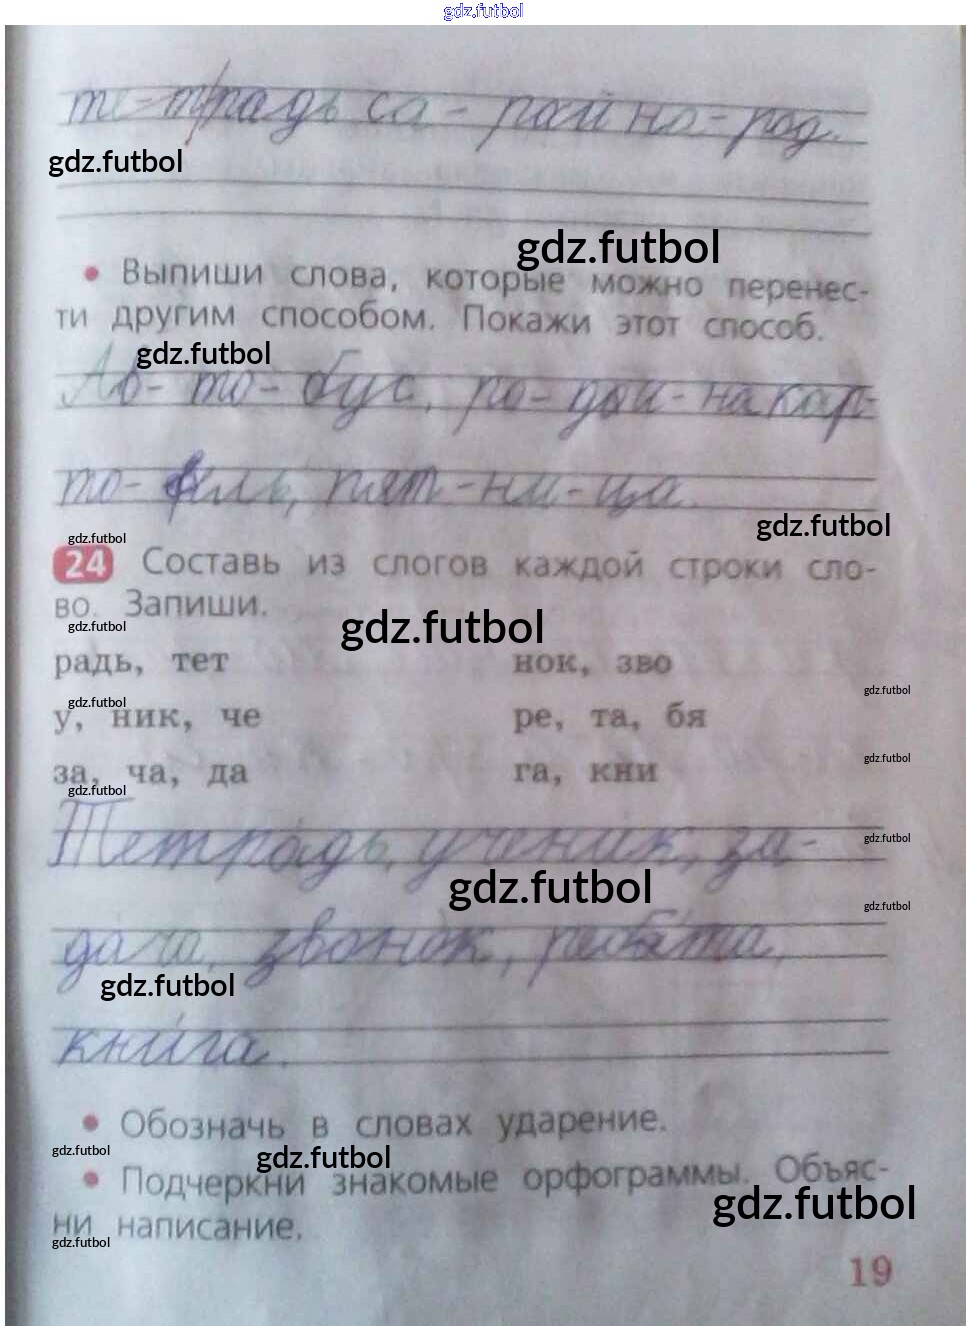 gdz.futbol
те-традь са - рай на- род.
gdz.futbol
gdz.futbol
• Выпиши слова, которые можно перенес-
ти другим способом. Покажи этот способ.
gdz.futbol
Ав- то- бус, ро- дой - на кар-
то- фель, пят - ни - ца.
gdz.futbol
gdz.futbol
24 Составь из слогов каждой строки сло-
во. Запиши.
gdz.futbol
gdz.futbol
радь, тет нок, зво
gdz.futbol
gdz.futbol
у, ник, че ре, та, бя
gdz.futbol
за, ча, да га, кни
gdz.futbol
Тетрадь, ученик, за-
gdz.futbol
gdz.futbol
gdz.futbol
дача, звонок, ребята,
gdz.futbol
книга.
• Обозначь в словах ударение.
gdz.futbol
gdz.futbol
• Подчеркни знакомые орфограммы. Объяс-
gdz.futbol
ни написание.
gdz.futbol
19